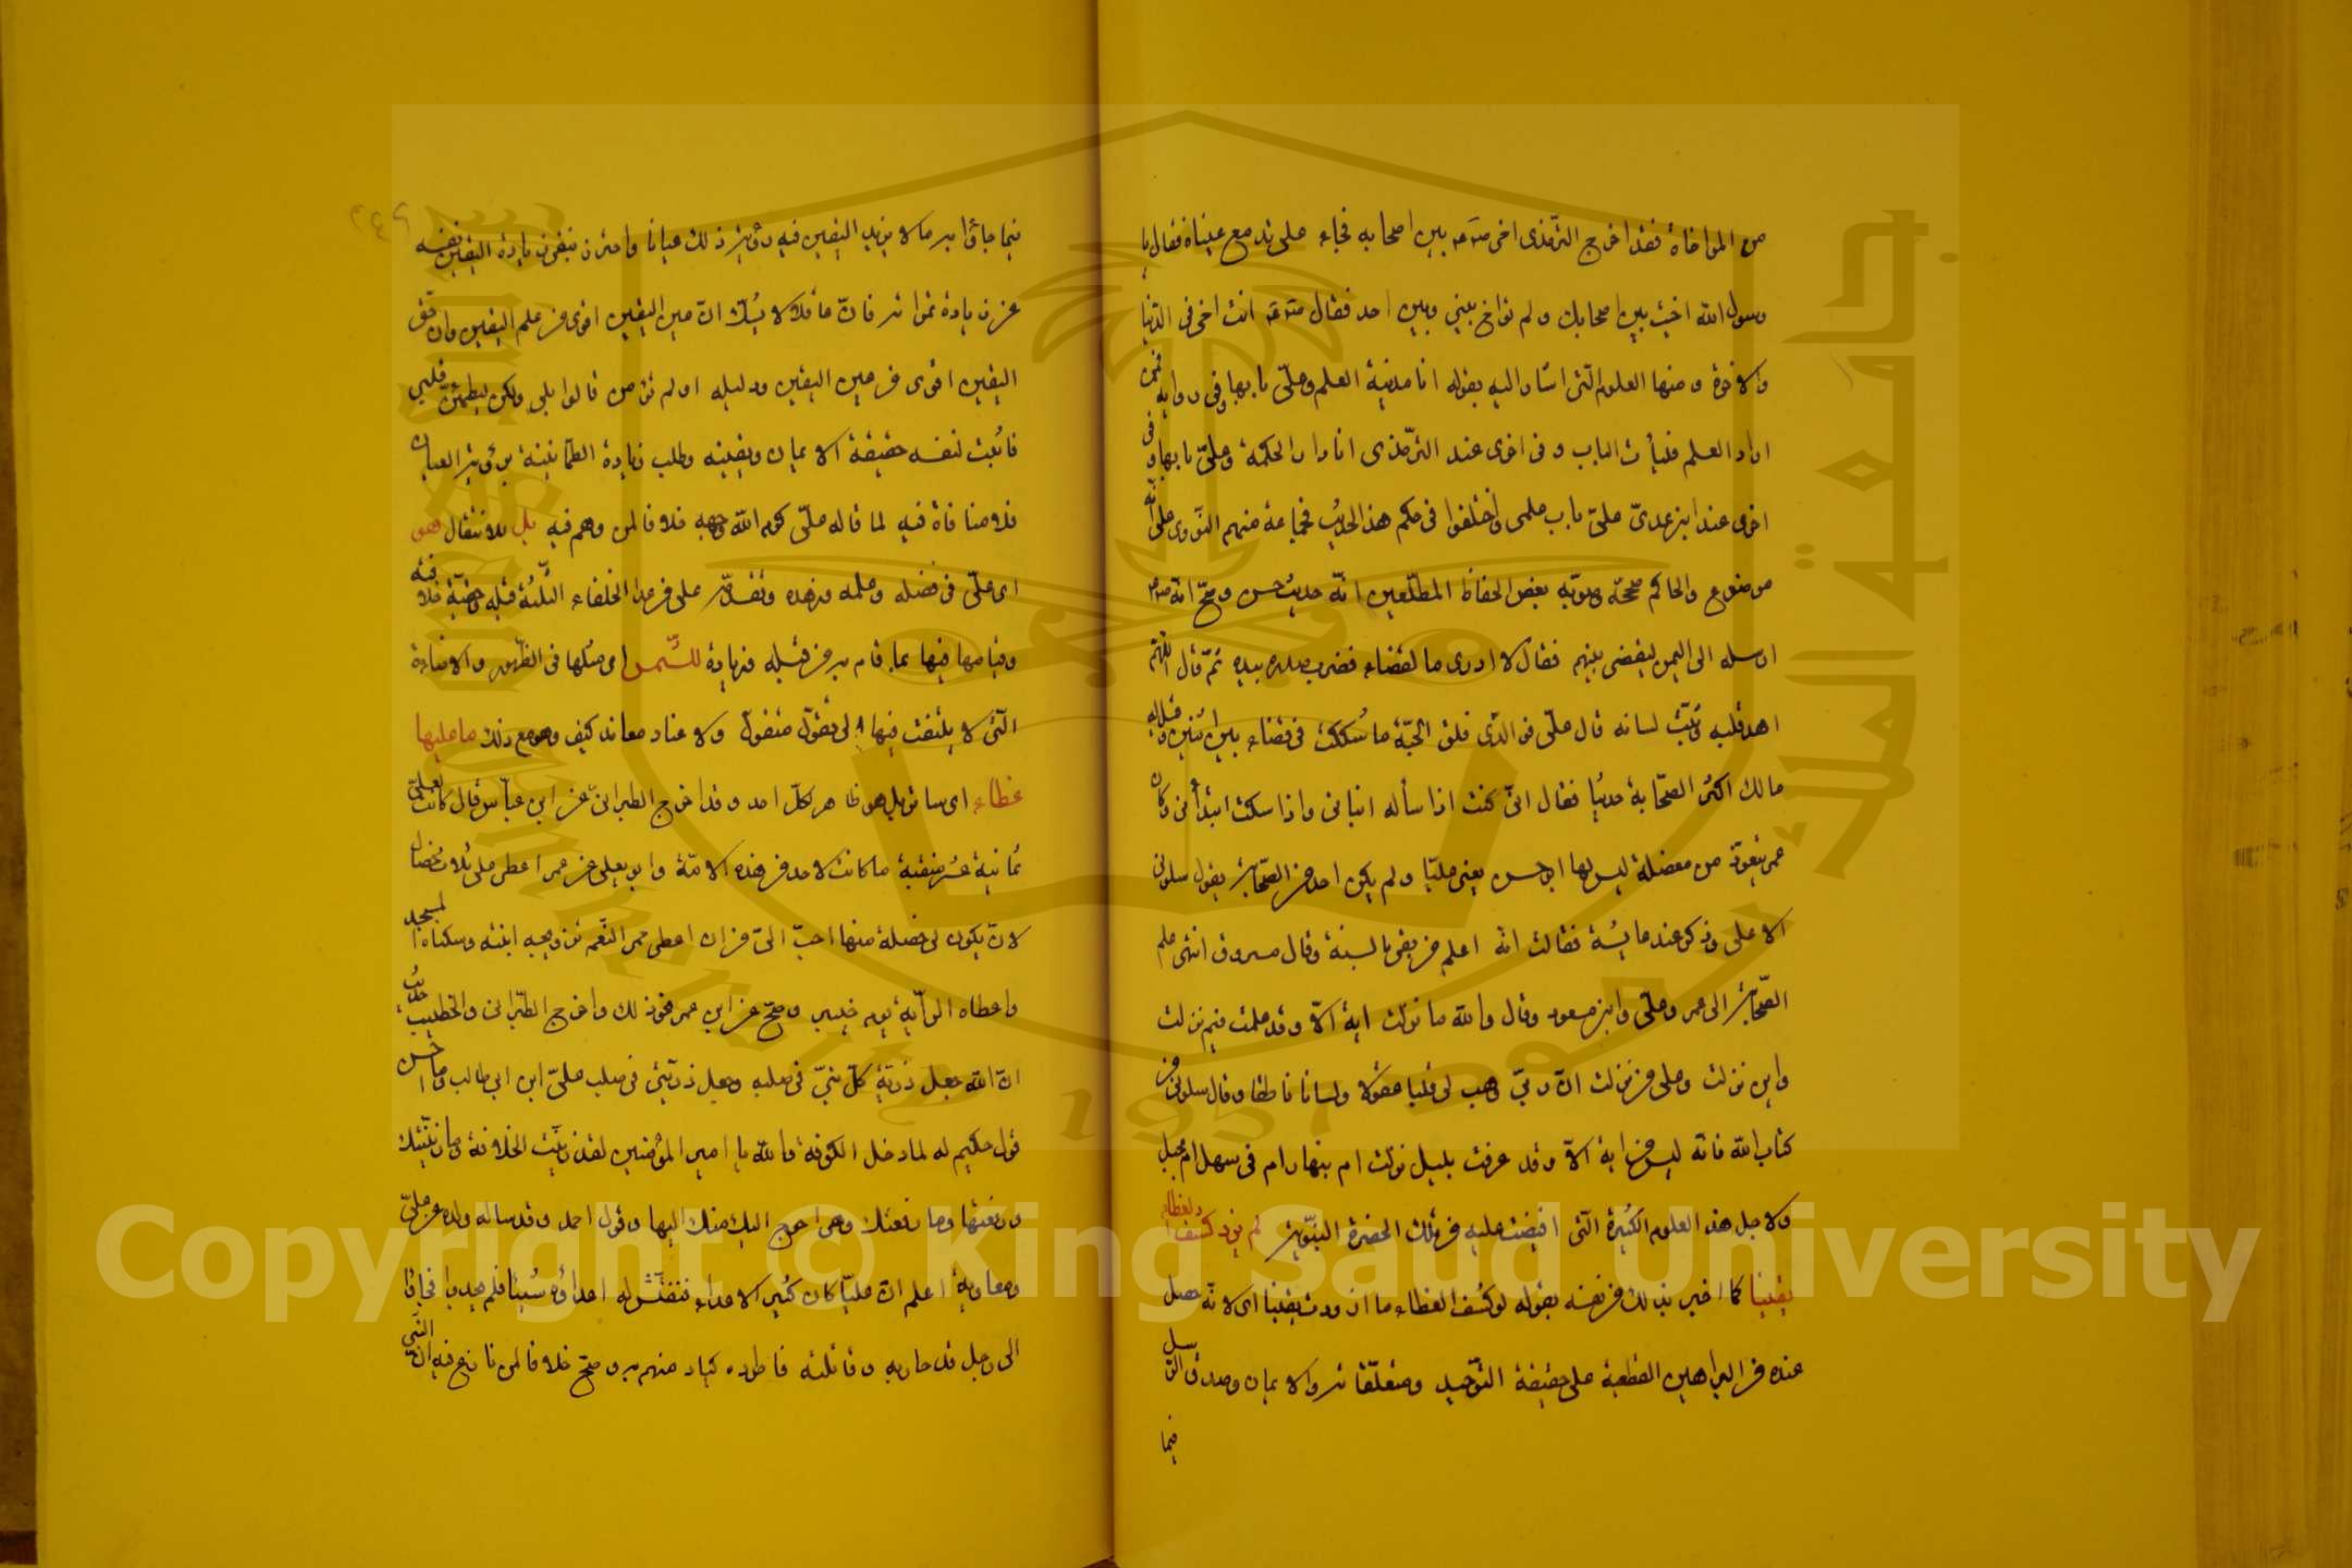 من المواخاة فقد اخرج الترمذى اخى صد عه بين اصحابه فجاء على تدمع عيناه فقال يا
رسول الله اخيت بين اصحابك ولم تواخ بينى وبين احد فقال صد عه انت اخى فى الدنيا
والاخرة ومنها العلوم التى اشار اليه بقوله انا مدينة العلم وعلىّ بابها وفى رواية فمن
اراد العلم فليأت الباب وفى اخرى عند الترمذى انا دار الحكمة وعلىّ بابها وفى
اخرى عند ابن عدىّ علىّ باب علمى واختلفوا فى حكم هذا الحديث فجماعة منهم النووى على انه
موضوع والحاكم صحّحه وصوّبه بعض الحفاظ المطّلعين انّه حديث حسن وصحّ انه صدعم
ارسله الى اليمن ليقضى بينهم فقال لا ادرى ما لقضاء فضرب صدره بيده ثمّ قال اللهم
اهد قلبه وثبّت لسانه قال علىّ فو الذّى فلق الحبّة ما شككت فى قضاء بين اثنين وقيل له
مالك اكثر الصّحابة حديثا فقال انّى كنت اذا سأله انبانى واذا سكت ابتدأنى وكان
عمر يتعوّذ من معضلة ليس لها ابو حسن يعنى عليّا ولم يكن احد من الصّحابة يقول سلونى
الا على وذكر عند عايشة فقالت انه اعلم من بقى بالسنة وقال مسروق انتهى علم
الصّحابة الى عمر وعلىّ وابن مسعود وقال والله ما نزلت اية الّا وقد علمت فيم نزلت
واين نزلت وعلى من نزلت انّ ربىّ وهب لى قلبا عقولا ولسانا ناطقا وقال سلونى من
كتاب الله فانه ليس من اية الّا وقد عرفت بليل نزلت ام بنهار ام فى سهل ام بجبل
ولاجل هذه العلوم الكثيرة التى افيضت عليه من تلك الحضرة النبوّية لم يزد كشف الغطاء
يقينا كما اخبر بذلك من نفسه بقوله لو كشف الغطاء ما ازددت يقينا اى لانّه حصل
عنده من البراهين القطعية على حقيقة التوّحيد ومتعلّقاته والايمان وصدق الرسل
فيما
٢٤٩
فيما جاؤا به ما لا يزيد اليقين فيه رؤية ذلك عيانا واحترز بنفى زيادة اليقين نفسه
عن زيادة ثمراته فانّ عاقلا لا يشك انّ عين اليقين اقوى من علم اليقين وان حق
اليقين اقوى من عين اليقين ودليله اولم تؤمن قال بلى ولكن ليطمئن قلبى
فاثبت لنفسه حقيقة الايمان ويقينه وطلب زيادة الطمانينة برؤية العيان
فلا منافاة فيه لما قاله علىّ كرم الله وجهه خلافا لمن وهم فيه بل بلا نتقال هو
اى علىّ فى فضله وعلمه وزهده وتقدّمه على من عدا الخلفاء الثلثة قبله وحقيّة خلافته
وقيامها فيها بما قام به من قبله وزيادة للشّمس اى مثلها فى الظّهور والاضاءة
التى لا يلتفت فيها الى تقوّل متقوّل ولا عناد معاند كيف وهو مع ذلك ما عليها
غطاء اى ساتر بل هو ظاهر لكلّ احد وقد اخرج الطبرانى عن ابن عبّاس قال كانت لعلىّ
ثمانية عشر منقبة ما كانت لاحد من هذه الامّة وابو يعلى عن عمر اعطى على ثلاث خصال
لان يكون لى خصلة منها احبّ الىّ من ان اعطى حمر النّعم تزويجه ابنته وسكناه المسجد
واعطاه الرّاية يوم خيبر وصحّ عن ابن عمر نحو ذلك واخرج الطبرانى والخطيب حديث
انّ الله جعل ذريّة كلّ نبىّ فى صلبه وجعل ذريّتى فى صلب علىّ ابن ابى طالب وما احسن
قول حكيم له لما دخل الكوفة والله يا امير المؤمنين لقد زيّنت الخلافة وما زيّنتك
ورفعتها وما رفعتك وهى احوج اليك منك اليها وقول احمد وقد ساله ولده عن علىّ
ومعاوية اعلم انّ عليّا كان كثير الاعداء ففتّش له اعداؤه شيئا فلم يجدوا فجاؤا
الى رجل قد حاربه وقاتلته فاطروه كيادا منهم به وصحّ خلافا لمن نازع فيه انّ النبى
Copyright © King Saud University
1957